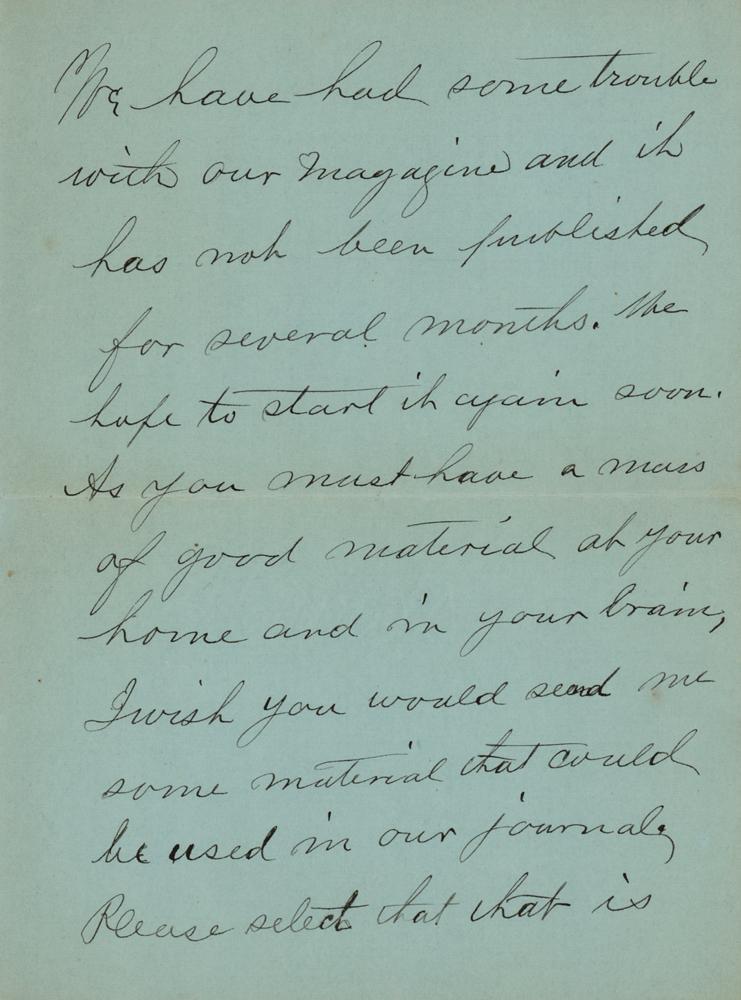 We have had some trouble
with our Magazine and it
has not been published
for several months. We
hope to start it again soon.
As you must have a mass
of good material at your
home and in your brain,
I wish you would send me
some material that could
be used in our journal,
Please select that that is